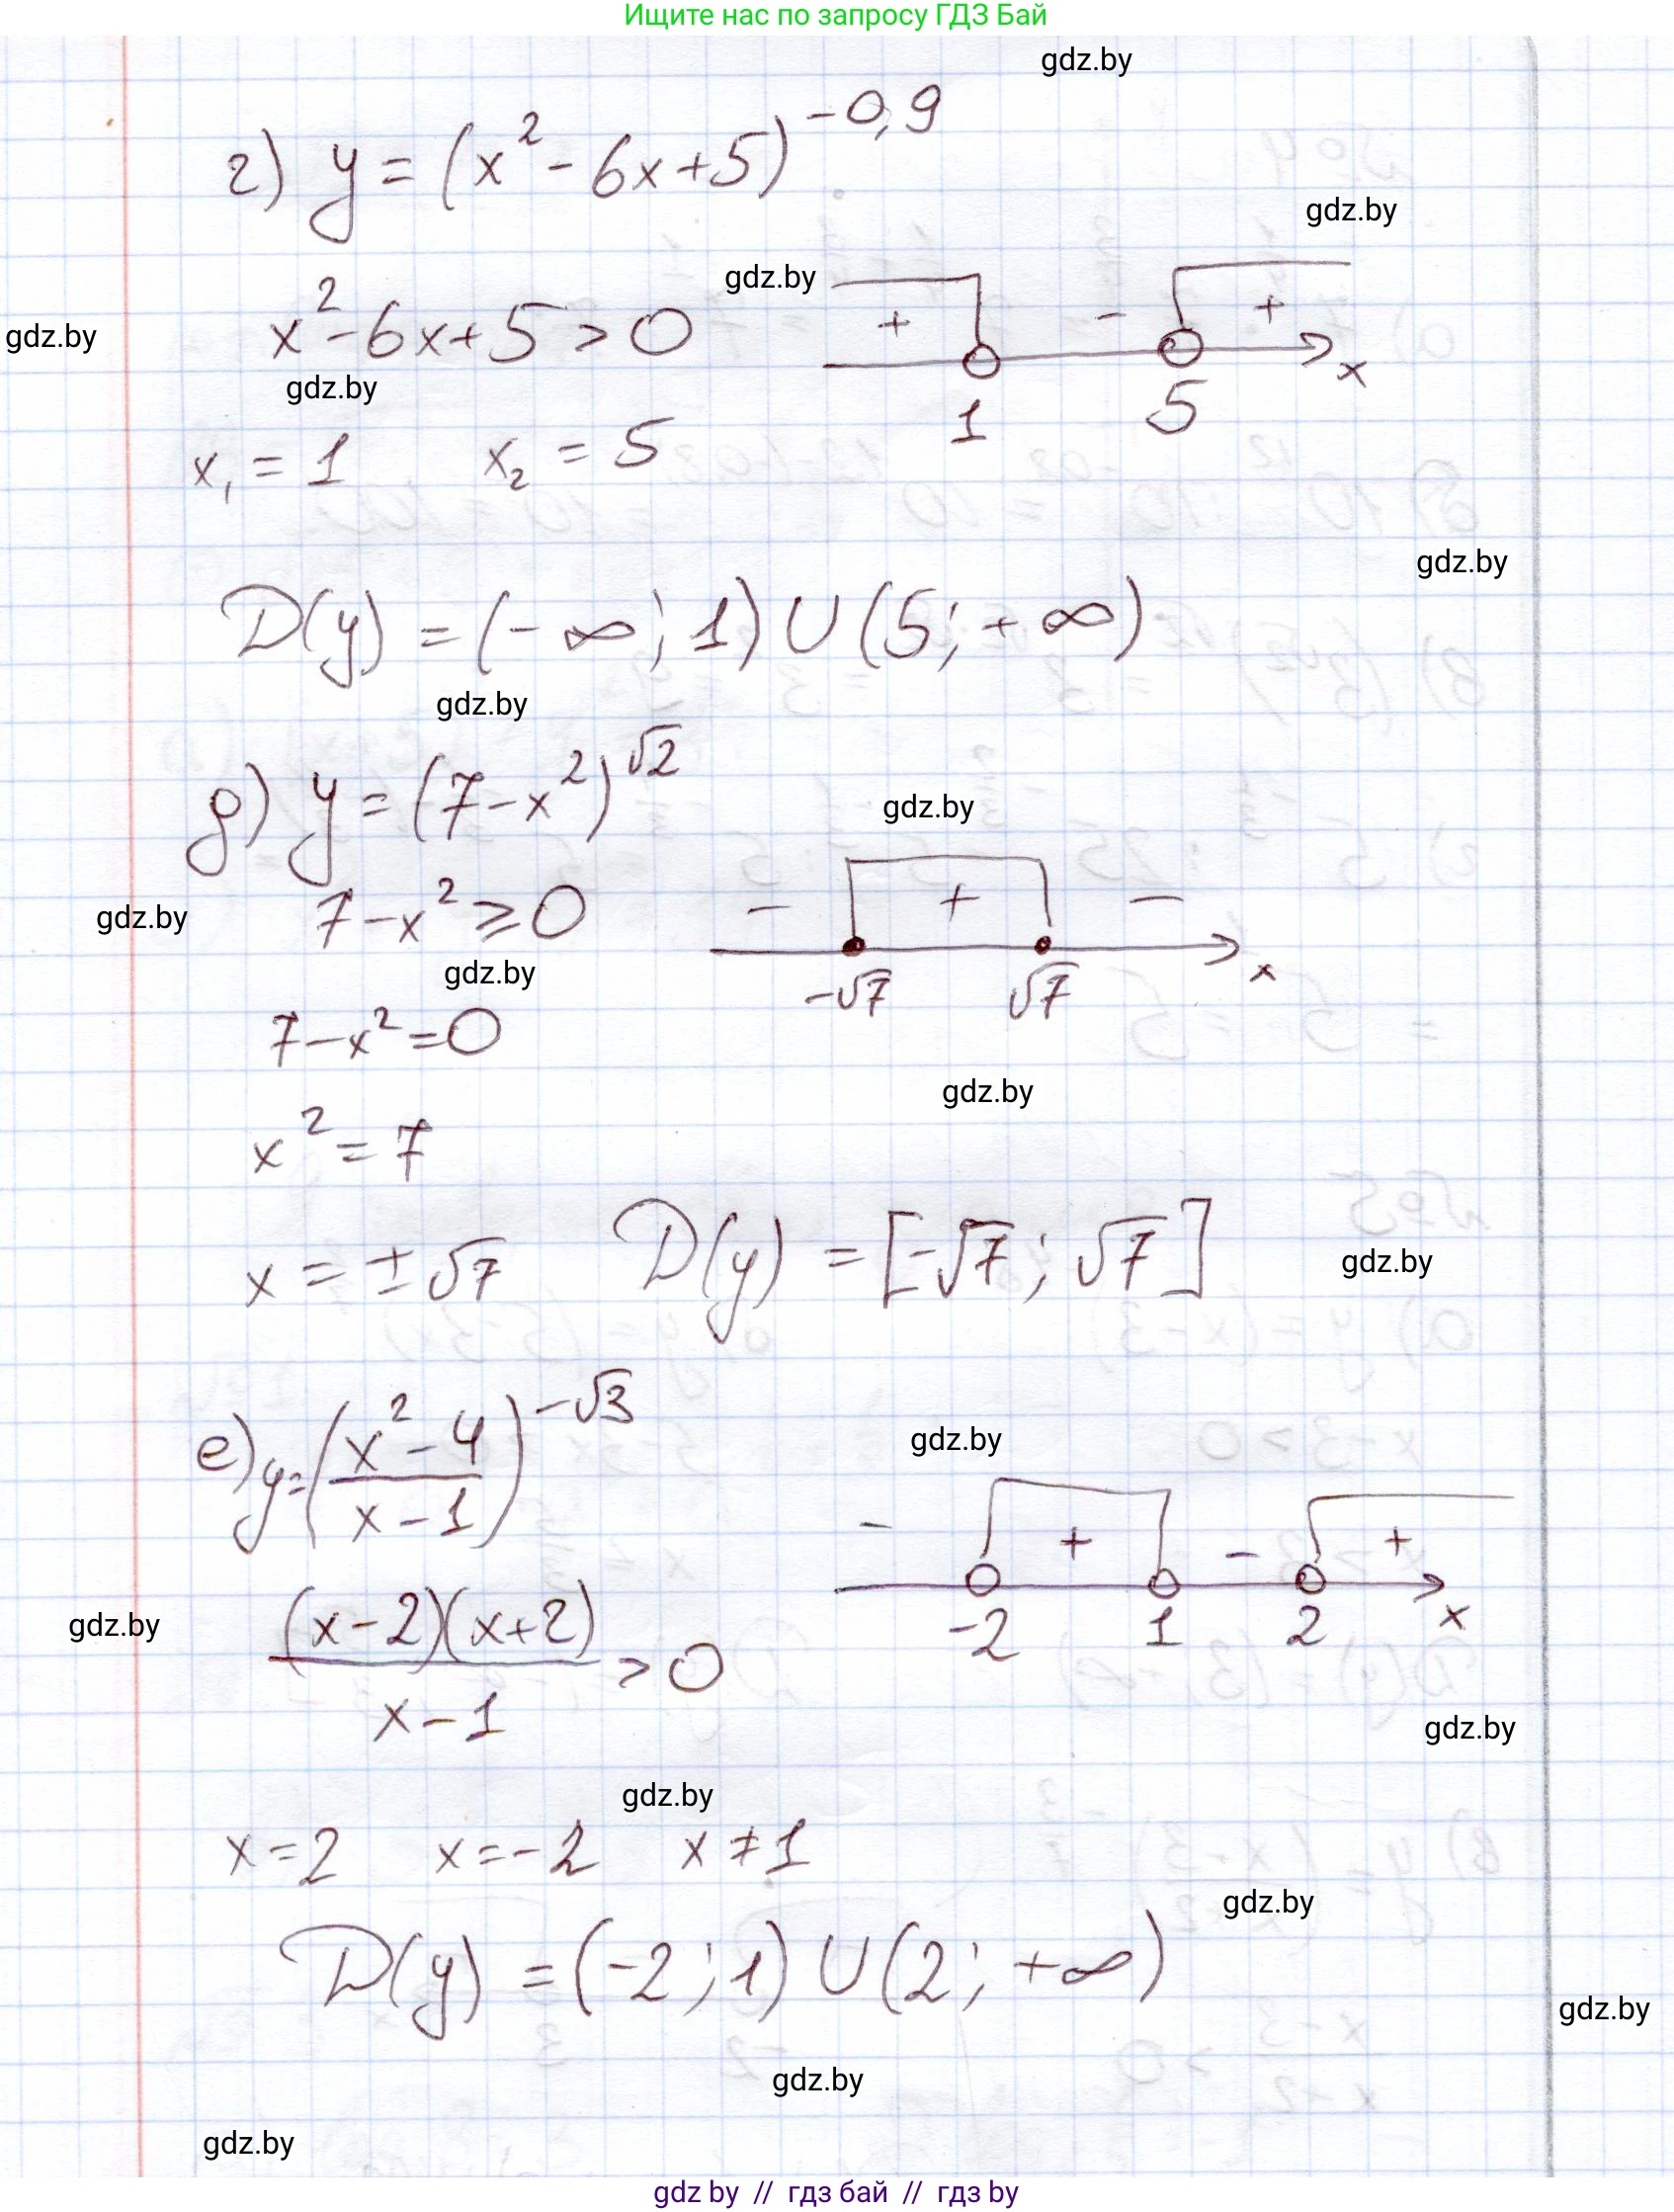 Ищите нас по запросу ГДЗ Бай
gdz.by
г) y = (x² - 6x + 5)^-0,9
gdz.by
gdz.by
x² - 6x + 5 > 0
+ - + x
gdz.by
gdz.by
1 5
x₁ = 1 x₂ = 5
gdz.by
D(y) = (-∞; 1) ∪ (5; +∞)
gdz.by
д) y = (7 - x²)^√2
gdz.by
7 - x² ≥ 0
- + - x
gdz.by
gdz.by
-√7 √7
7 - x² = 0
gdz.by
x² = 7
x = ±√7 D(y) = [-√7; √7]
gdz.by
е) y = ((x² - 4)/(x - 1))^-√3
gdz.by
- + - + x
-2 1 2
(x - 2)(x + 2)/(x - 1) > 0
gdz.by
gdz.by
gdz.by
x = 2 x = -2 x ≠ 1
gdz.by
D(y) = (-2; 1) ∪ (2; +∞)
gdz.by
gdz.by
gdz.by
gdz by // гдз бай // гдз by